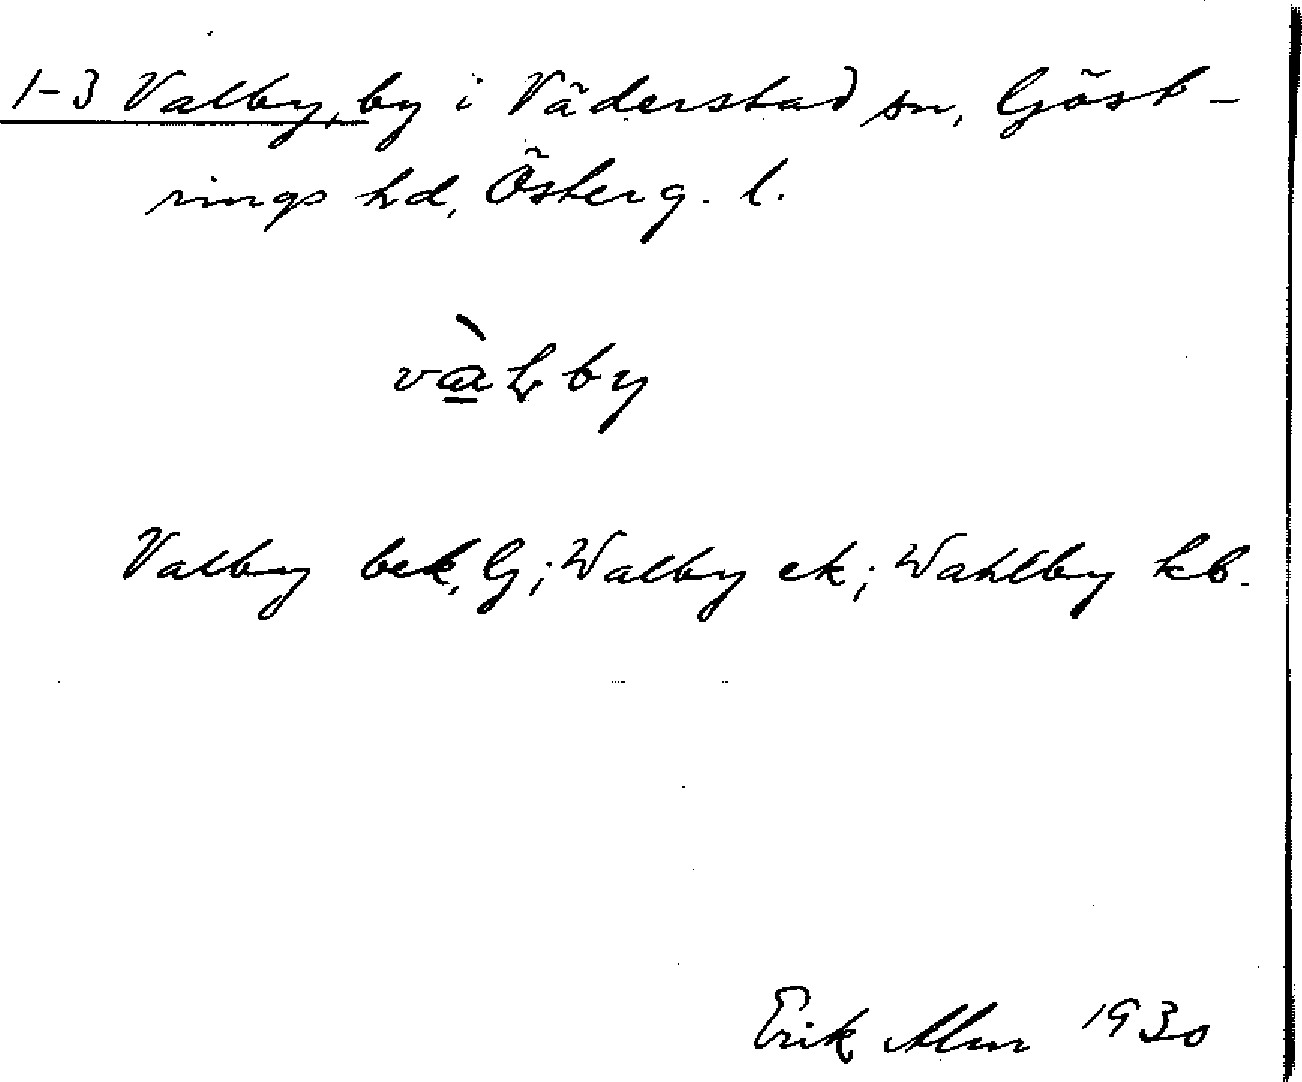 1-3 Valby, by i Väderstad sn, Göst-
rings hd, Österg. l.
vàlby
Valby bek, G; Walby ek; Wahlby kb.
Erik Alm 1930